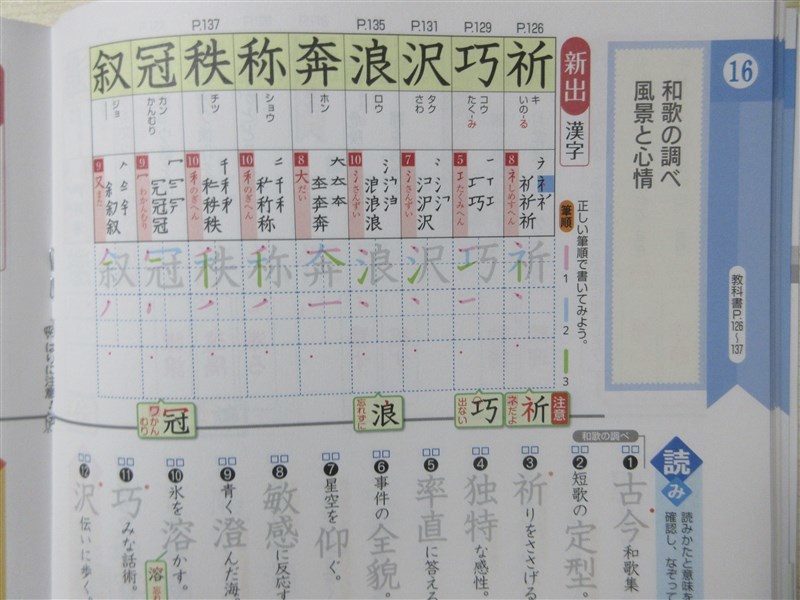 16
和歌の調べ
風景と心情
教科書P.126~137
新出漢字
正しい筆順で書いてみよう。
筆順
1
2
3
P.126
祈
キ
いの-る
8
ネしめすへん
P.129
巧
コウ
たく-み
5
エたくみへん
P.131
沢
タク
さわ
7
氵さんずい
P.135
浪
ロウ
10
氵さんずい
奔
ホン
8
大だい
称
ショウ
10
禾のぎへん
P.137
秩
チツ
10
禾のぎへん
冠
カン
かんむり
9
冖わかんむり
叙
ジョ
9
又また
注意
祈
ネだよ
巧
出ない
浪
忘れずに
冠
ワかんむり
読み
読みかたと意味を
確認し、なぞって
和歌の調べ
❶古今和歌集
❷短歌の定型。
❸祈りをささげる
❹独特な感性。
❺率直に答える
❻事件の全貌。
❼星空を仰ぐ。
❽敏感に反応す
❾青く澄んだ海
❿氷を溶かす。
溶
⓫巧みな話術。
⓬沢伝いに歩く